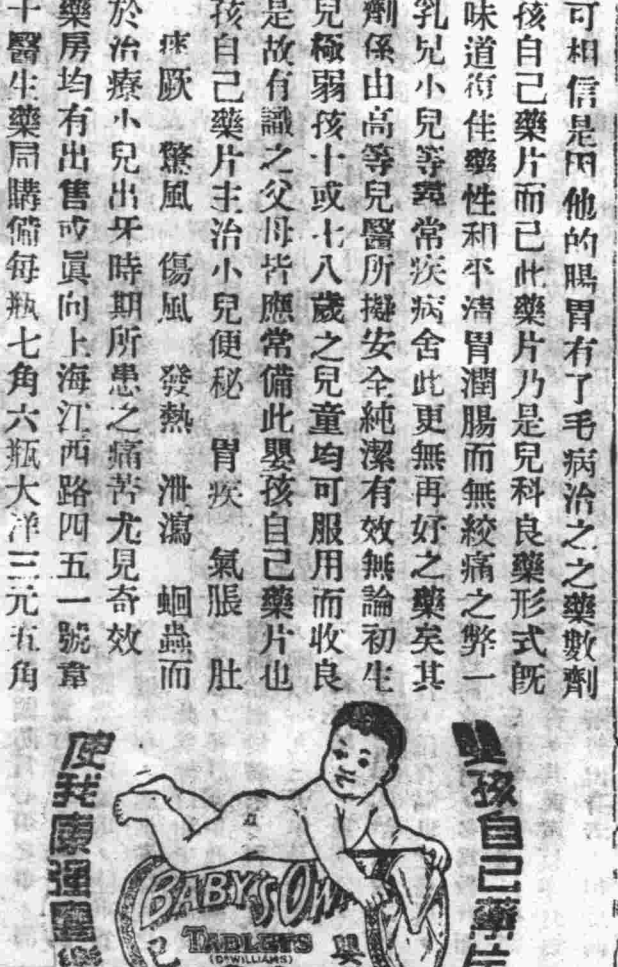 可相信是因他的腸胃有了毛病治之之藥數劑
孩自己藥片而已此藥片乃是兒科良藥形式旣
味道復佳藥性和平清胃潤腸而無絞痛之弊一
乳兒小兒等尋常疾病舍此更無再好之藥矣其
劑係由高等兒醫所擬安全純潔有效無論初生
兒極弱孩十或七八歲之兒童均可服用而收良
是故有識之父母皆應常備此嬰孩自己藥片也
孩自己藥片主治小兒便秘 胃疾 氣脹 肚
痙厥 驚風 傷風 發熱 泄瀉 蛔蟲而
於治療小兒出牙時期所患之痛苦尤見奇效
藥房均有出售或眞向上海江西路四五一號韋
十醫生藥局購備每瓶七角六瓶大洋三元五角
嬰孩自己藥片
使我康强
BABY'S OWN
TABLETS
(DR WILLIAMS)
嬰
己